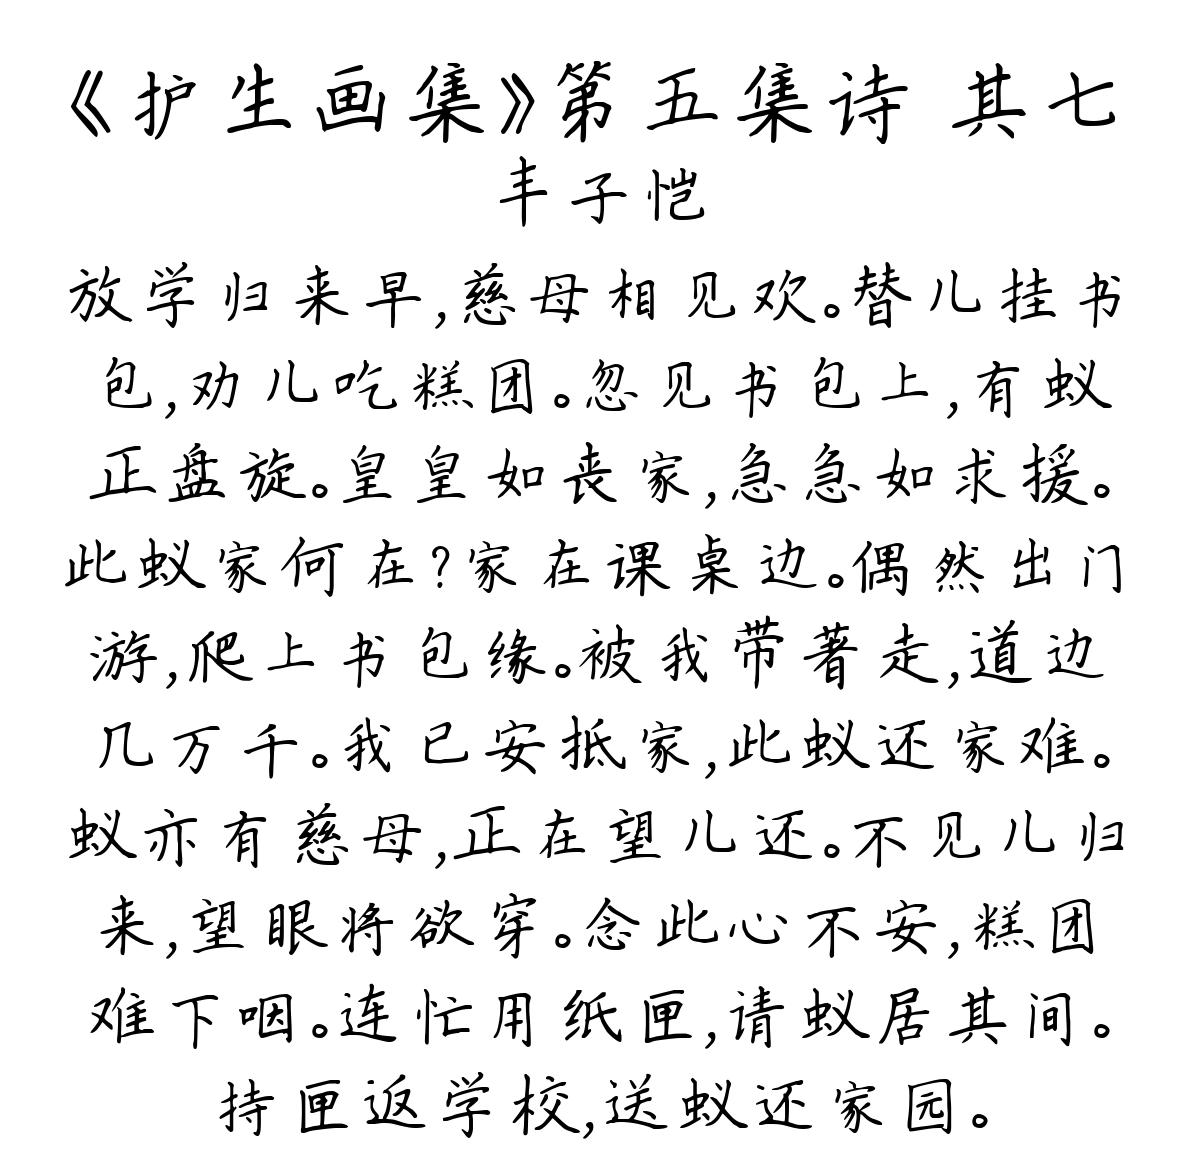 《护生画集》第五集诗 其七
丰子恺
放学归来早,慈母相见欢。替儿挂书
包,劝儿吃糕团。忽见书包上,有蚁
正盘旋。皇皇如丧家,急急如求援。
此蚁家何在?家在课桌边。偶然出门
游,爬上书包缘。被我带著走,道边
几万千。我已安抵家,此蚁还家难。
蚁亦有慈母,正在望儿还。不见儿归
来,望眼将欲穿。念此心不安,糕团
难下咽。连忙用纸匣,请蚁居其间。
持匣返学校,送蚁还家园。